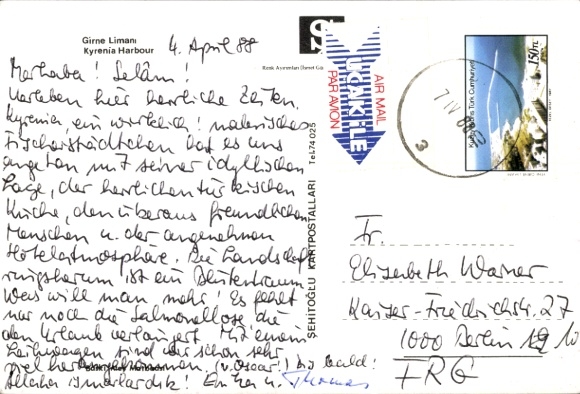 Girne Limanı
Kyrenia Harbour
4. April 88
Merhaba! Selâm!
Verleben hier herrliche Zeiten.
Kyrenia, ein wirklich! malerisches
Fischerstädtchen hat es uns
angetan mit seiner idyllischen
Lage, der herrlichen türkischen
Küche, den überaus freundlichen
Menschen u. der angenehmen
Hotelatmosphäre. Die Landschaft
ringsherum ist ein Blütentraum
Was will man mehr! Es fehlt
nur noch die Salmonellose die
den Urlaub verlängert. Mit einem
Leihwagen sind wir schon sehr
viel herumgekommen. (v. Oscar!) Bis bald!
Allaha ismarladik! u. Thomas
ŞEHİTOĞLU KARTPOSTALLARI Tel.74025
S
Renk Ayrımları
AIR MAIL
UÇAK İLE
PAR AVION
150TL
Kuzey Kıbrıs Türk Cumhuriyeti
Fr.
Elisabeth Warner
Kaiser-Friedrichstr. 27
1000 Berlin 10
FRG